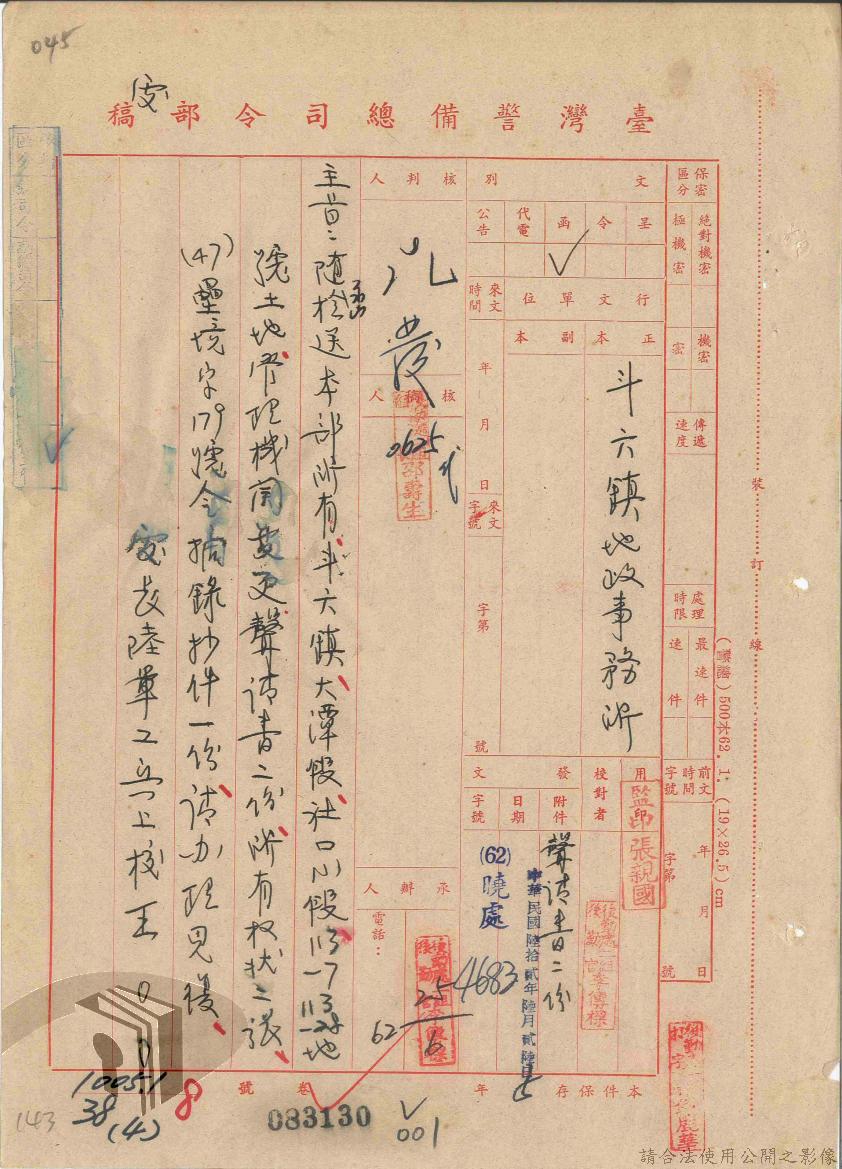 045
臺灣警備總司令部稿
保密區分
絕對機密
極機密
機密
密
傳遞速度
處理時限
最速件
速件
前文時間字號
年
月
日
字第
號
文別
呈
令
函
代電
公告
行文單位
正本
副本
斗六鎮地政事務所
來文時間
年
月
日
來文字號
字第
號
用印
監印 張親國
校對者
發文
附件
聲請書二份
日期
中華民國陸拾貳年陸月貳陸日
字號
(62)
曉處
4683
核判人
核稿人
0625
邵壽生
承辦人
電話：
62 25/6
主旨：隨函檢送本部所有斗六鎮大潭段社口小段113-7 113-28地
號土地管理機關變更聲請書二份所有權狀二張
(47)壘境字179號令摘錄抄件一份請办理見復
裝
訂
線
500本62.1. (19×26.5)cm
本件保存
年
卷
號
083130
001
1005.1
38
(4)
8
143
請合法使用公開之影像